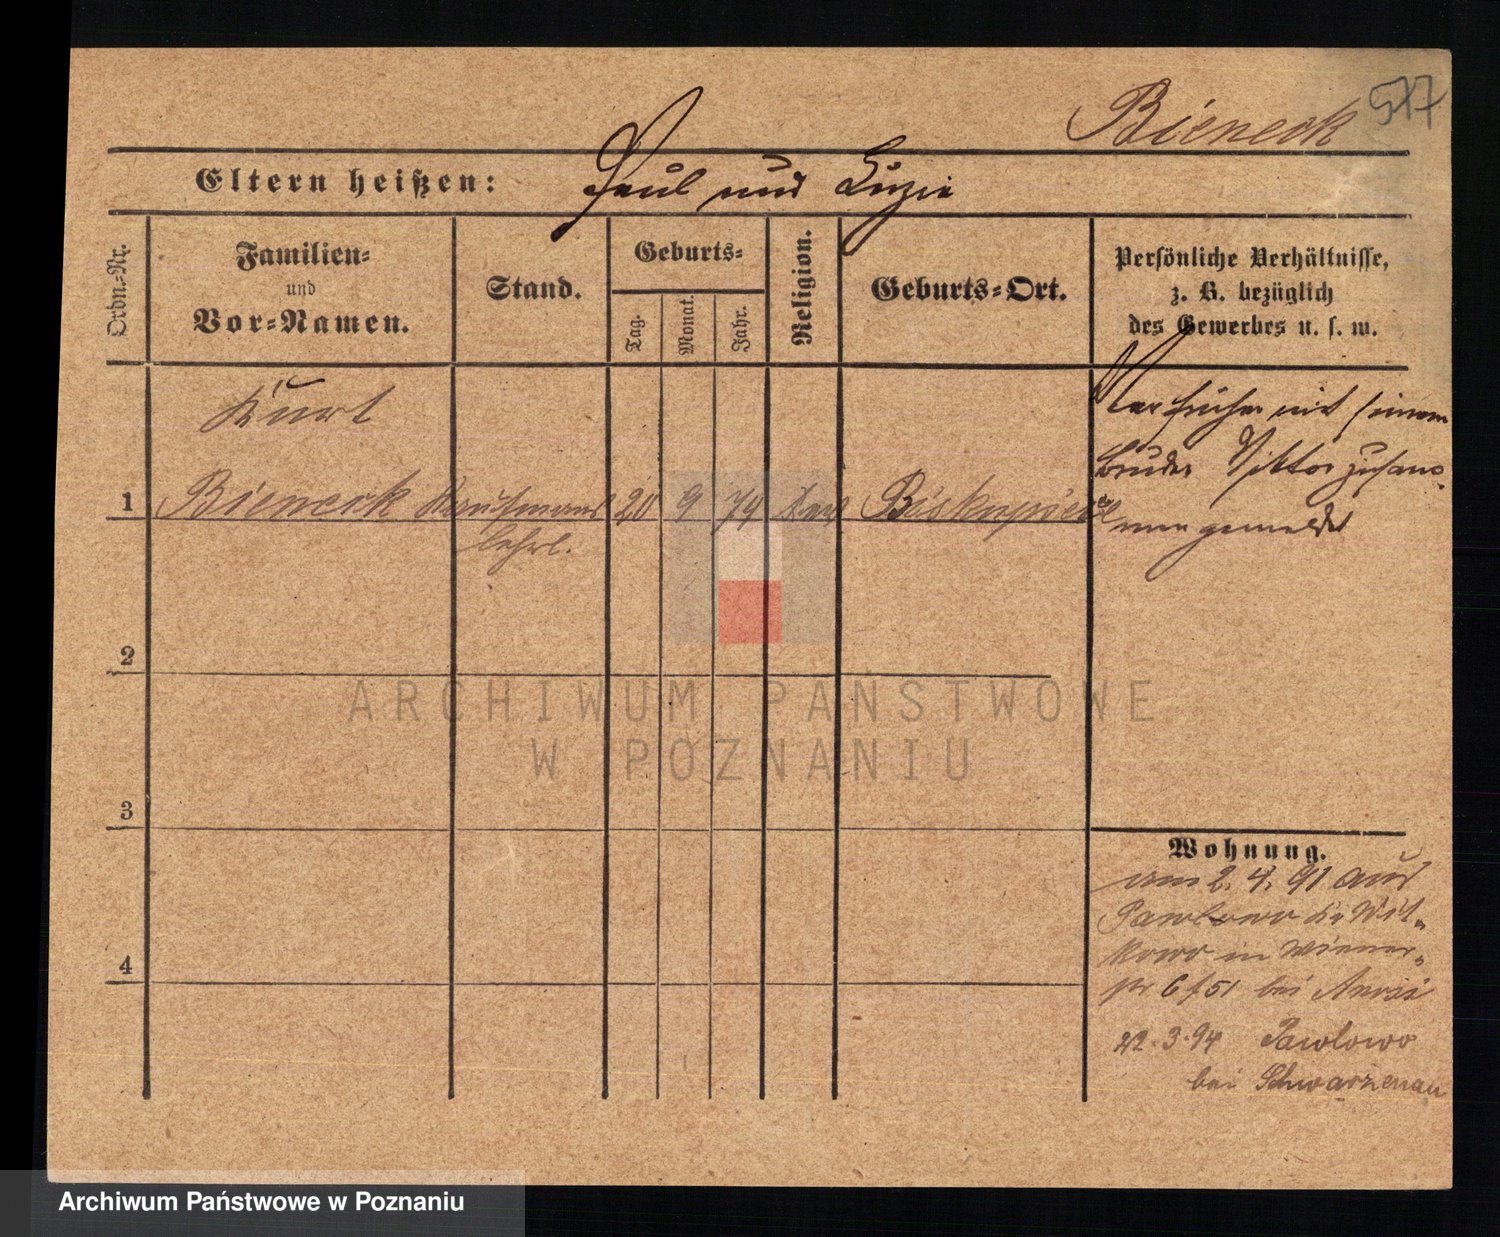 Bieneck 517
Eltern heißen: Paul und Luzie
Ordn.-Nr.
Familien-
und
Vor-Namen.
Stand.
Geburts-
Tag.
Monat.
Jahr.
Religion.
Geburts-Ort.
Persönliche Verhältnisse,
z. B. bezüglich
des Gewerbes u. s. w.
Kurt
War früher mit seinem
Bruder Viktor zusam-
1 Bieneck Kaufmanns 20 9 74
men gemeldet
lehrl.
2
ARCHIWUM PAŃSTWOWE
W POZNANIU
3
Wohnung.
am 2. 4. 91 aus
Pawlowo Kr Wit-
kowo in Wiener-
str 6 bei
4
22.3.94 Pawlowo
bei Schwarzenau
Archiwum Państwowe w Poznaniu